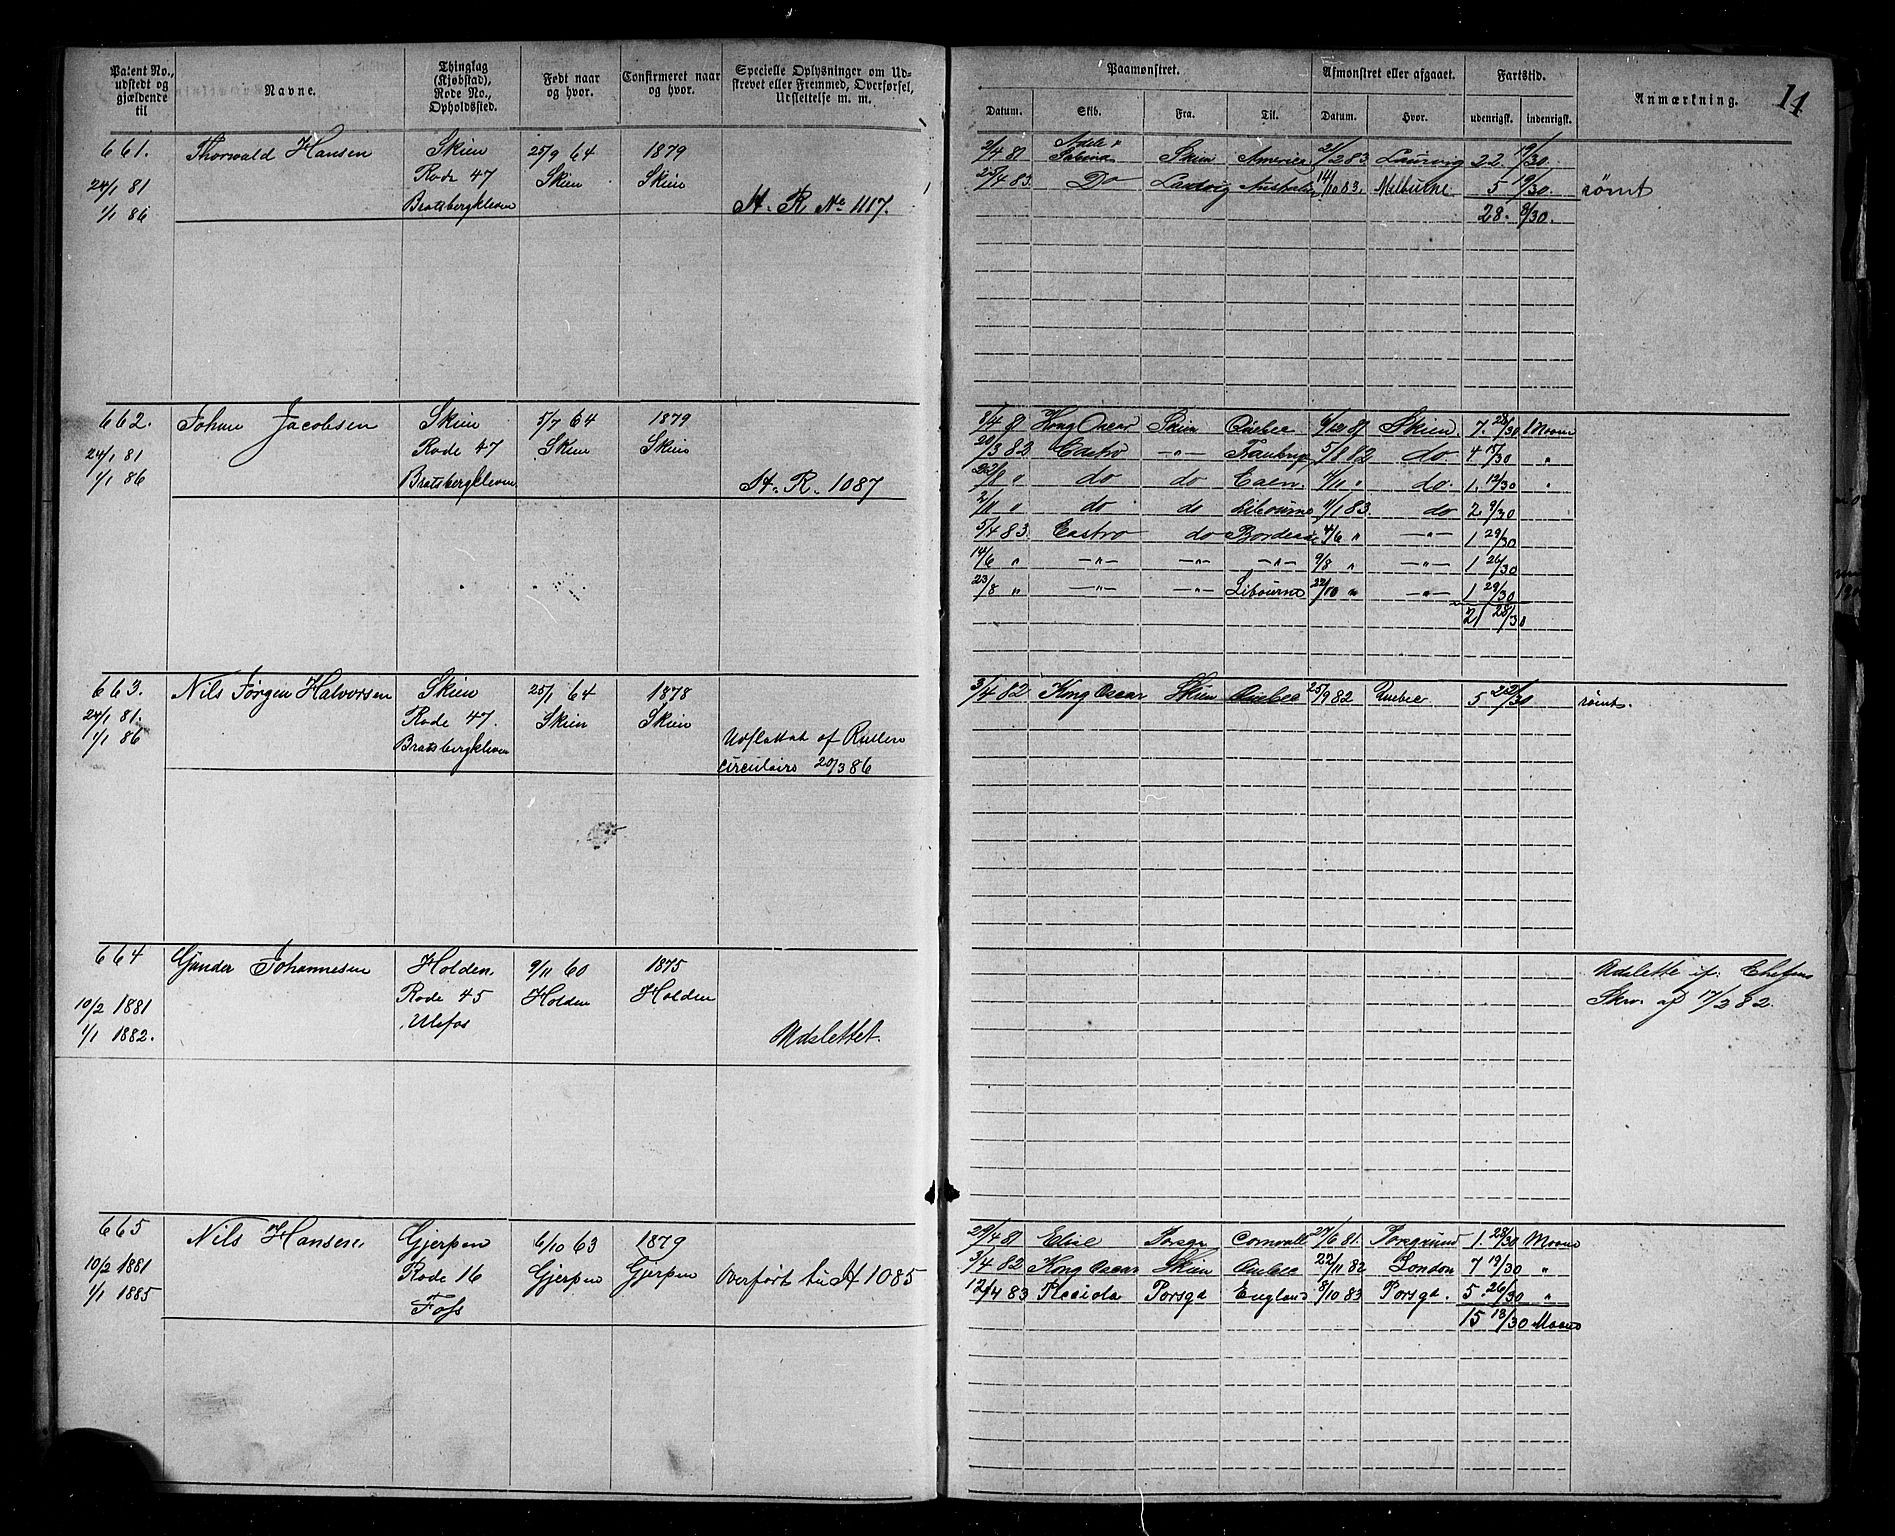 Patent No., udstedt og gjældende til
Navne.
Thinglag (Kjøbstad), Rode No., Opholdssted.
Født naar og hvor.
Confirmeret naar og hvor.
Specielle Oplysninger om Udstrevet eller Fremmed, Overførsel, Udslettelse m. m.
Paamønstret.
Afmønstret eller afgaaet.
Fartstid.
Anmærkning.
11
Datum.
Skib.
Fra.
Til.
Datum.
Hvor.
udenrigsk.
indenrigsk.
661. Thorwald Hansen Skien 25/9 64 1879
24/1 81 Rode 47 Skien Skien
1/1 86 Bratsbergkleven A. R No 1117.
2/4 81 Adele & Sabina Skien America 21/2 83 Laurvig 22. 19/30.
25/4 83. Do Laurvig Australien 14/10 83. Melburne 5 19/30. rømt
28. 8/30.
662. Johan Jacobsen Skien 5/7 64 1879
24/1 81 Rode 47 Skien Skien
1/1 86 Bratsbergkleven A. R. 1087
8/4 81 Kong Oscar Skien Quebec 6/12 81 Skien. 7. 28/30 Maane
20/3 82 Castro —"— 5/8 82 do 4 15/30 "
22/8 " do do Caen. 4/11 " do. 1. 12/30 "
2/11 " do do Libourne 11/1 83. do 2 9/30
5/4 83. Castro do Bordeaux 4/6 " —"— 1 29/30
14/6 " —"— —"— —"— 9/8 " —"— 1 26/30
23/8 " —"— —"— Libourne 22/10 " —"— 1 29/30
21 28/30
663. Nils Jørgen Halvorsen Skien 25/1 64 1878
24/1 81. Rode 47. Skien Skien
1/1 86 Bratsbergkleven Udslettet af Rullen
circulaire 20/3 86
3/4 82 Kong Oscar Skien Quebec 25/9 82 Quebec 5 22/30 rømt.
664 Gunder Johannesen Holden. 9/11 60 1875
10/2 1881 Rode 45 Holden Holden
1/1 1882. Ulefos Udslettet.
Udslette if. Chefens
Skr. af 17/2 82.
665 Nils Hansen. Gjerpen 6/10 63 1879
10/2 1881 Rode 16 Gjerpen Gjerpen Overført til A 1085
1/1 1885 Foss
29/4 81 Elise Porsgr Cornvall 27/6 81. Porsgrund 1. 28/30 Maane
3/4 82 Kong Oscar Skien Quebec 22/11 82 London 7 19/30 "
12/4 83 Porsgr England 8/10 83 Porsgr. 5. 26/30 "
15 13/30 Maaned